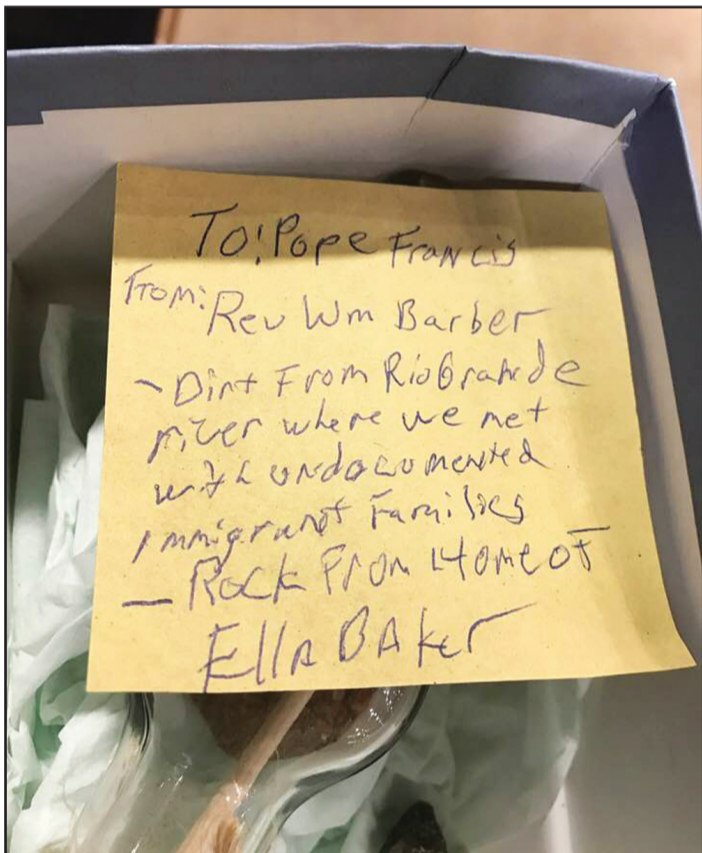 To: Pope Francis
From: Rev Wm Barber
- Dirt From Rio Grande
river where we met
with undocumented
Immigrant Families
- Rock From Home of
Ella Baker